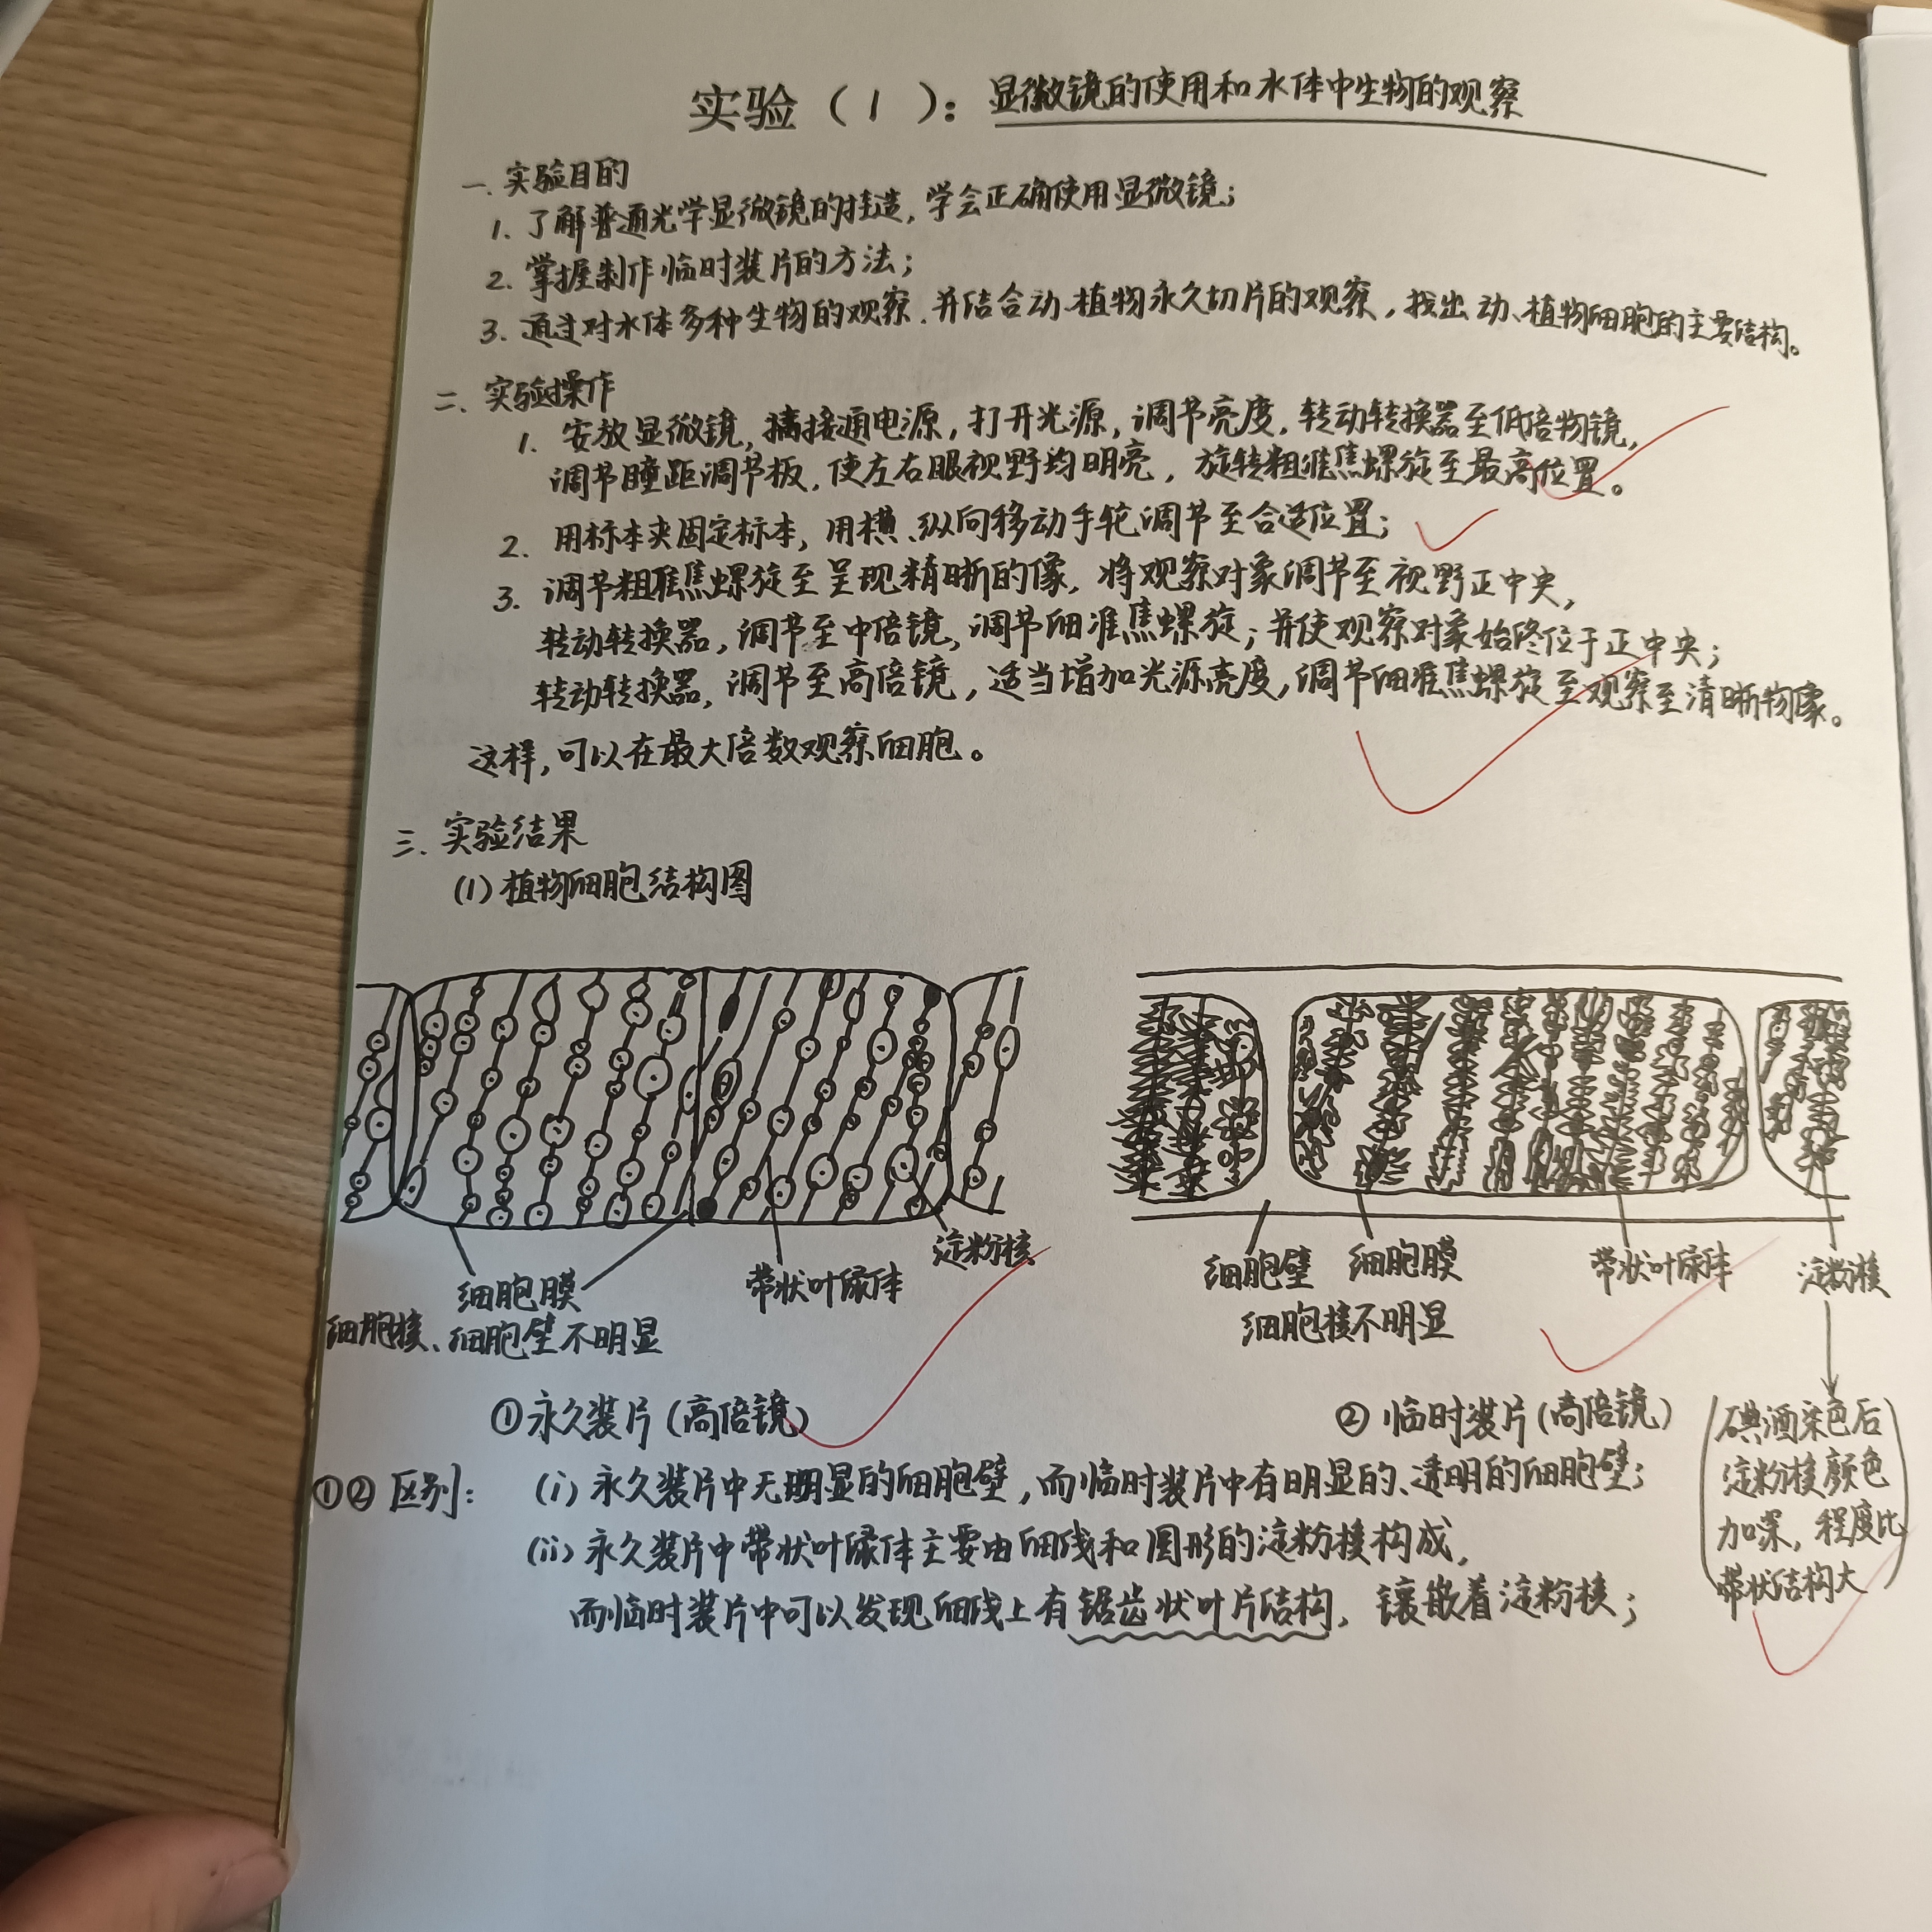 实验（1）：显微镜的使用和水体中生物的观察
一. 实验目的
1. 了解普通光学显微镜的构造，学会正确使用显微镜；
2. 掌握制作临时装片的方法；
3. 通过对水体多种生物的观察，并结合动、植物永久切片的观察，找出动、植物细胞的主要结构。
二. 实验操作
1. 安放显微镜，接通电源，打开光源，调节亮度，转动转换器至低倍物镜，
调节瞳距调节板，使左右眼视野均明亮，旋转粗准焦螺旋至最高位置。
2. 用标本夹固定标本，用横、纵向移动手轮调节至合适位置；
3. 调节粗准焦螺旋至呈现精晰的像，将观察对象调节至视野正中央，
转动转换器，调节至中倍镜，调节细准焦螺旋；并使观察对象始终位于正中央；
转动转换器，调节至高倍镜，适当增加光源亮度，调节细准焦螺旋至观察至清晰物像。
这样，可以在最大倍数观察细胞。
三. 实验结果
(1) 植物细胞结构图
细胞膜
带状叶绿体
淀粉核
细胞核、细胞壁不明显
细胞壁
细胞膜
带状叶绿体
淀粉核
细胞核不明显
①永久装片（高倍镜）
② 临时装片（高倍镜）
碘酒染色后
淀粉核颜色
加深，程度比
带状结构大
①② 区别：
(i) 永久装片中无明显的细胞壁，而临时装片中有明显的、透明的细胞壁；
(ii) 永久装片中带状叶绿体主要由细线和圆形的淀粉核构成，
而临时装片中可以发现细线上有锯齿状叶片结构，镶嵌着淀粉核；